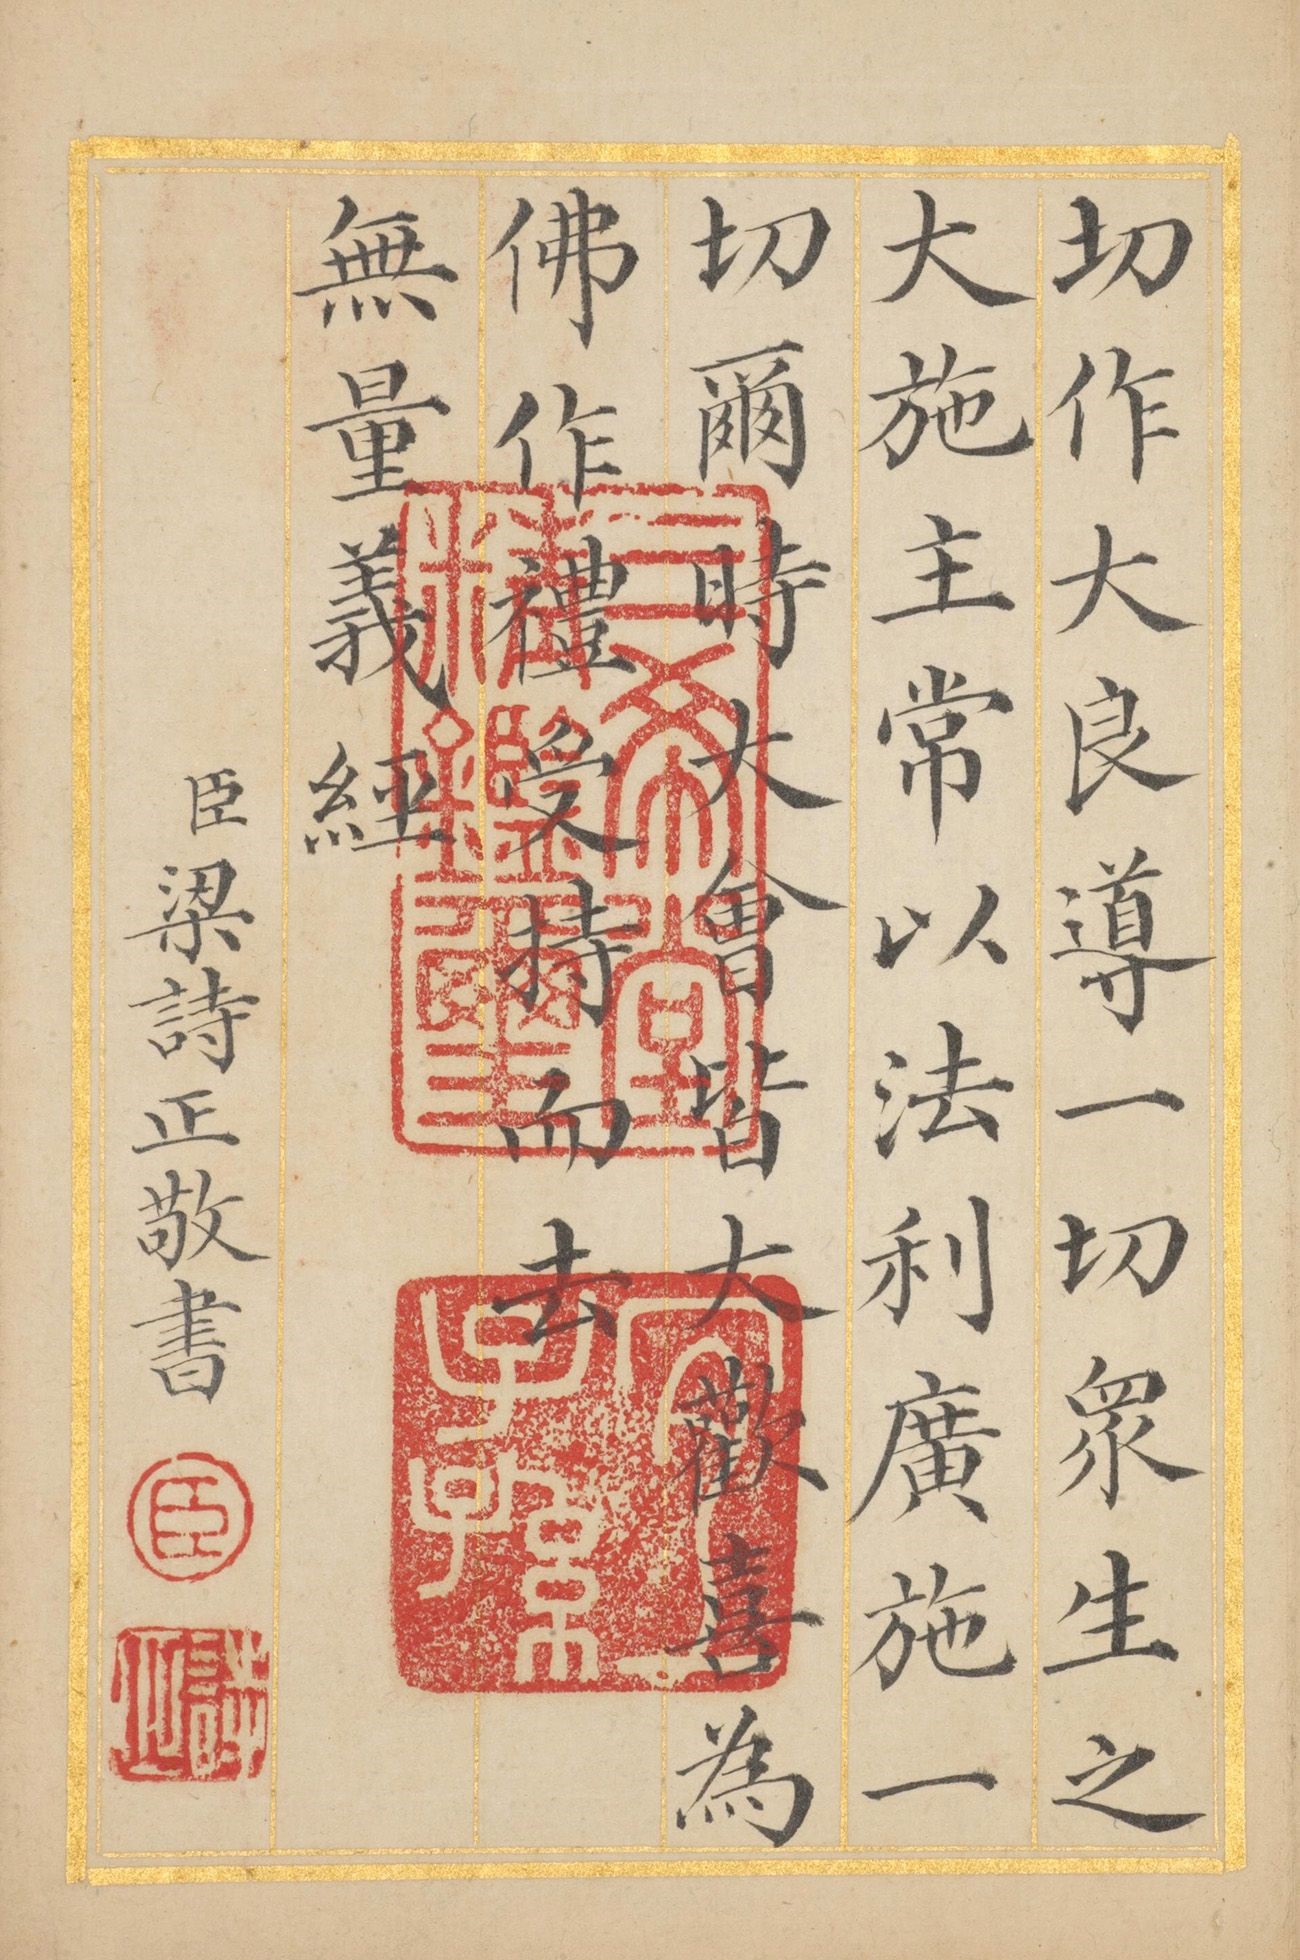 切作大良導一切眾生之
大施主常以法利廣施一
切爾時大會皆大歡喜為
佛作禮受持而去
無量義經
臣梁詩正敬書
三希堂
精鑑璽
宜
子孫
臣
詩正